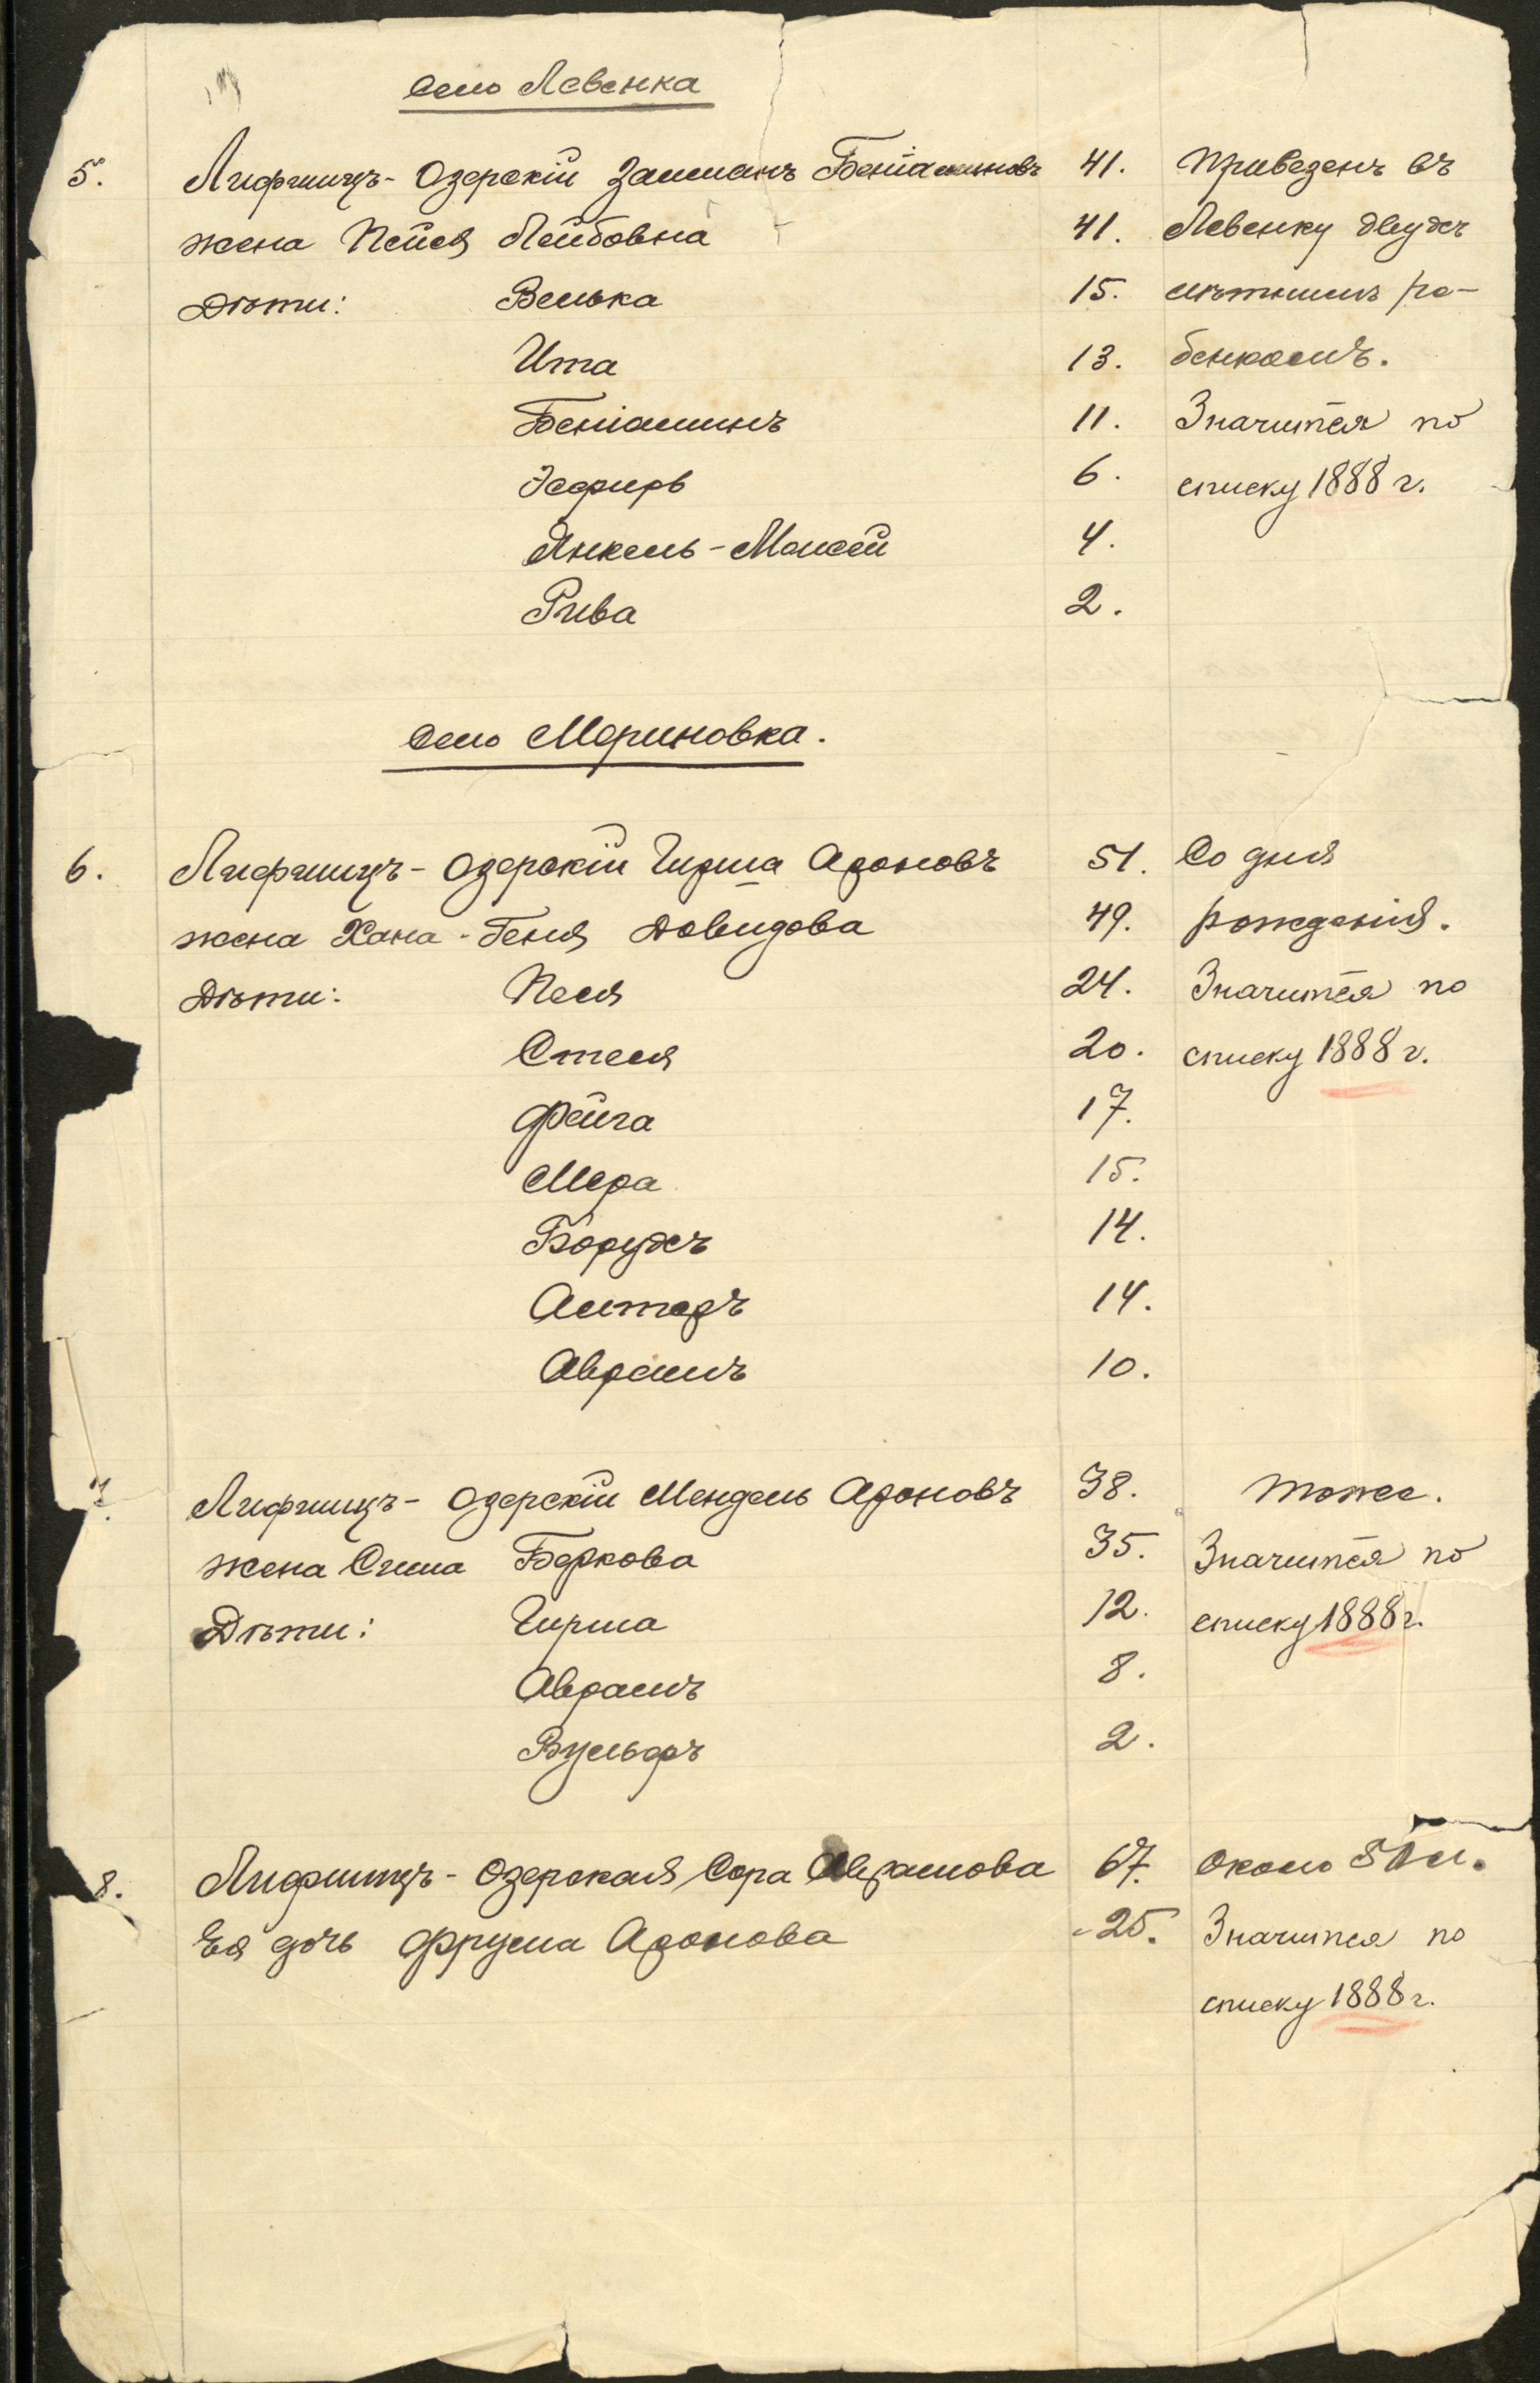 Село Левенка
5. Лифшицъ-Озерскій Залманъ Беніаминовъ 41. Привезенъ въ
жена Пейся Лейбовна 41. Левенку двухъ
Дѣти: Велька 15. лѣтнимъ ре-
Ита 13. бенкомъ.
Беніаминъ 11. Значится по
Эсфирь 6. списку 1888 г.
Янкель-Моисей 4.
Рива 2.
Село Мериновка.
6. Лифшицъ-Озерскій Гирша Ароновъ 51. Со дня
жена Хана-Геня Довидова 49. рожденія.
Дѣти: Песя 24. Значится по
Стеся 20. списку 1888 г.
Фейга 17.
Мера 15.
Борухъ 14.
Алтеръ 14.
Абрамъ 10.
7. Лифшицъ-Озерскій Мендель Ароновъ 38. Тоже.
жена Сима Беркова 35. Значится по
Дѣти: Гирша 12. списку 1888 г.
Абрамъ 8.
Вульфъ 2.
8. Лифшицъ-Озерская Сора Абрамова 67. Около 50 л.
Ея дочь Фрума Аронова 25. Значится по
списку 1888 г.